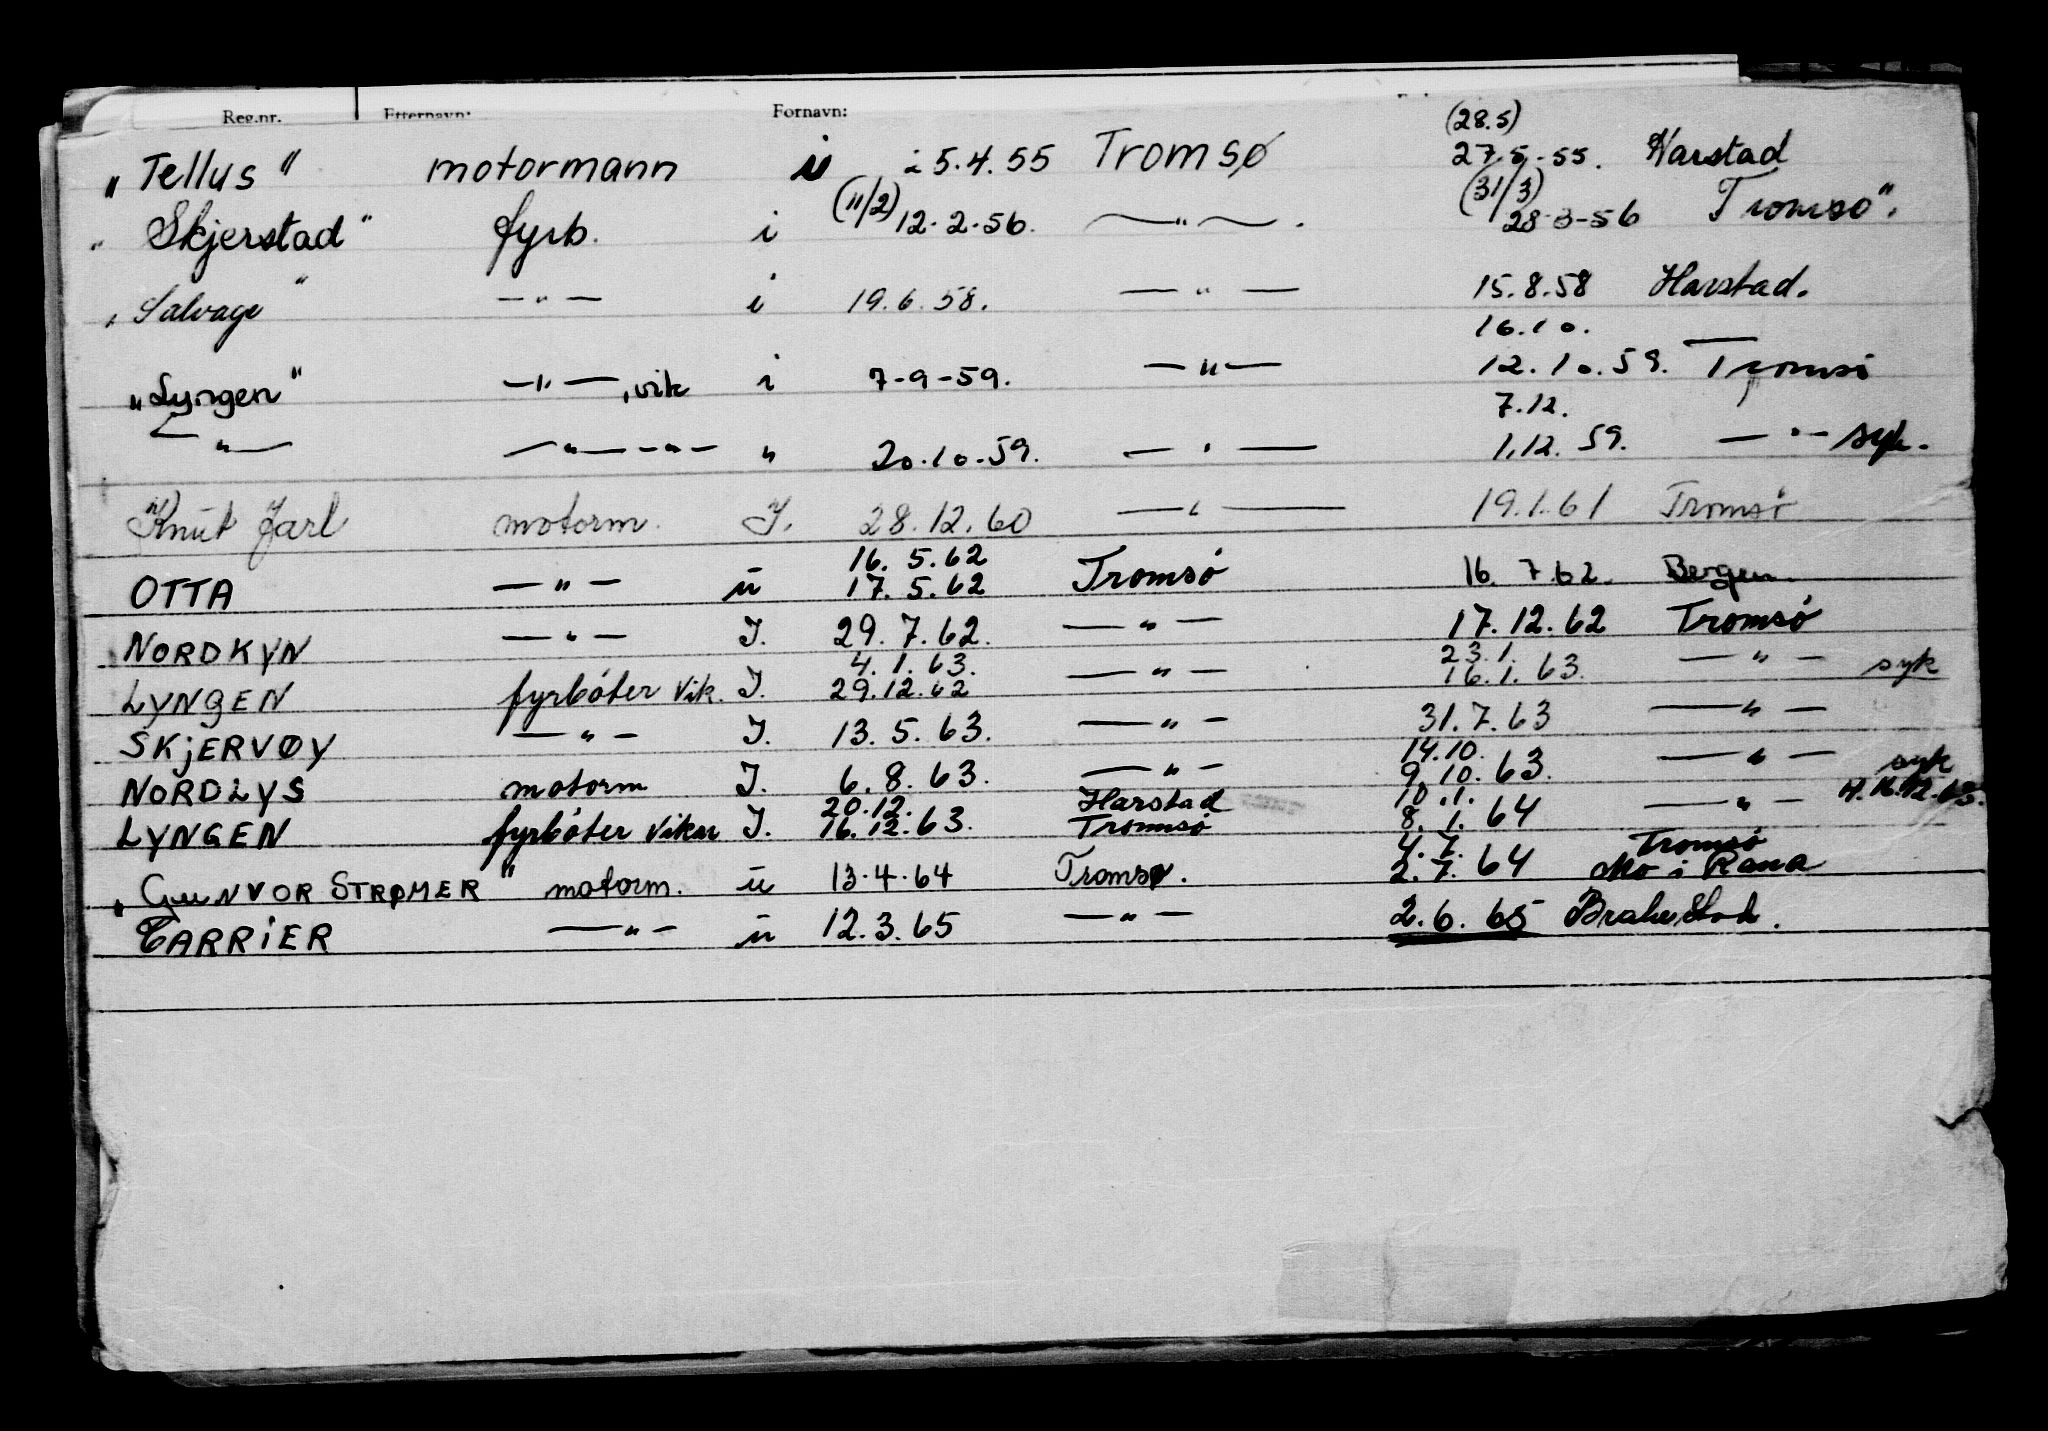 Reg.nr. Etternavn: Fornavn:
(28.5)
„Tellus" motormann i 5.4.55 Tromsø 27.5.55. Harstad
(11/2) (31/3)
„Skjerstad" fyrb. i 12.2.56. —"— . 28-3-56 Tromsø".
„Salvage" —"— i 19.6.58. —"— 15.8.58 Harstad.
16.10.
„Lyngen" —"—, vik i 7-9-59. —"— 12.10.59. Tromsø
7.12.
—"— —"—"— " 20.10.59. —"— 1.12.59. —"— syk.
"Knut Jarl" motorm. I. 28.12.60 —"— 19.1.61 Tromsø
16.5.62
OTTA —"— ü 17.5.62 Tromsø 16.7.62. Bergen.
NORDKYN —"— I. 29.7.62. —"— 17.12.62 Tromsø
4.1.63. 23.1.
LYNGEN fyrbøter vik. I. 29.12.62 —"— 16.1.63. —"— syk
SKJERVØY —"— I. 13.5.63. —"— 31.7.63 —"—
14.10.
NORDLYS motorm I. 6.8.63. —"— 9.10.63. —"— syk
20.12. Harstad 10.1.
LYNGEN fyrbøter vikar I. 16.12.63. Tromsø 8.1.64 —"—
4.7. Tromsø
„GUNVOR STRØMER" motorm. ü 13.4.64 Tromsø. 2.7.64 Mo i Rana
TARRIER —"— ü 12.3.65 —"— 2.6.65 Brahestad.